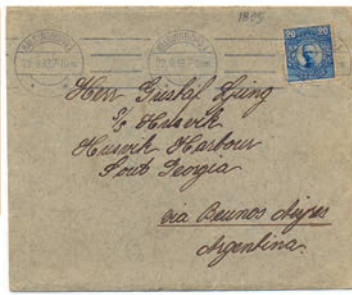 1895
20 20
Herr Gustaf Ljung
S/s Husvik
Husvik Harbour
Sout Georgia
via Beunos Aijres
Argentina.